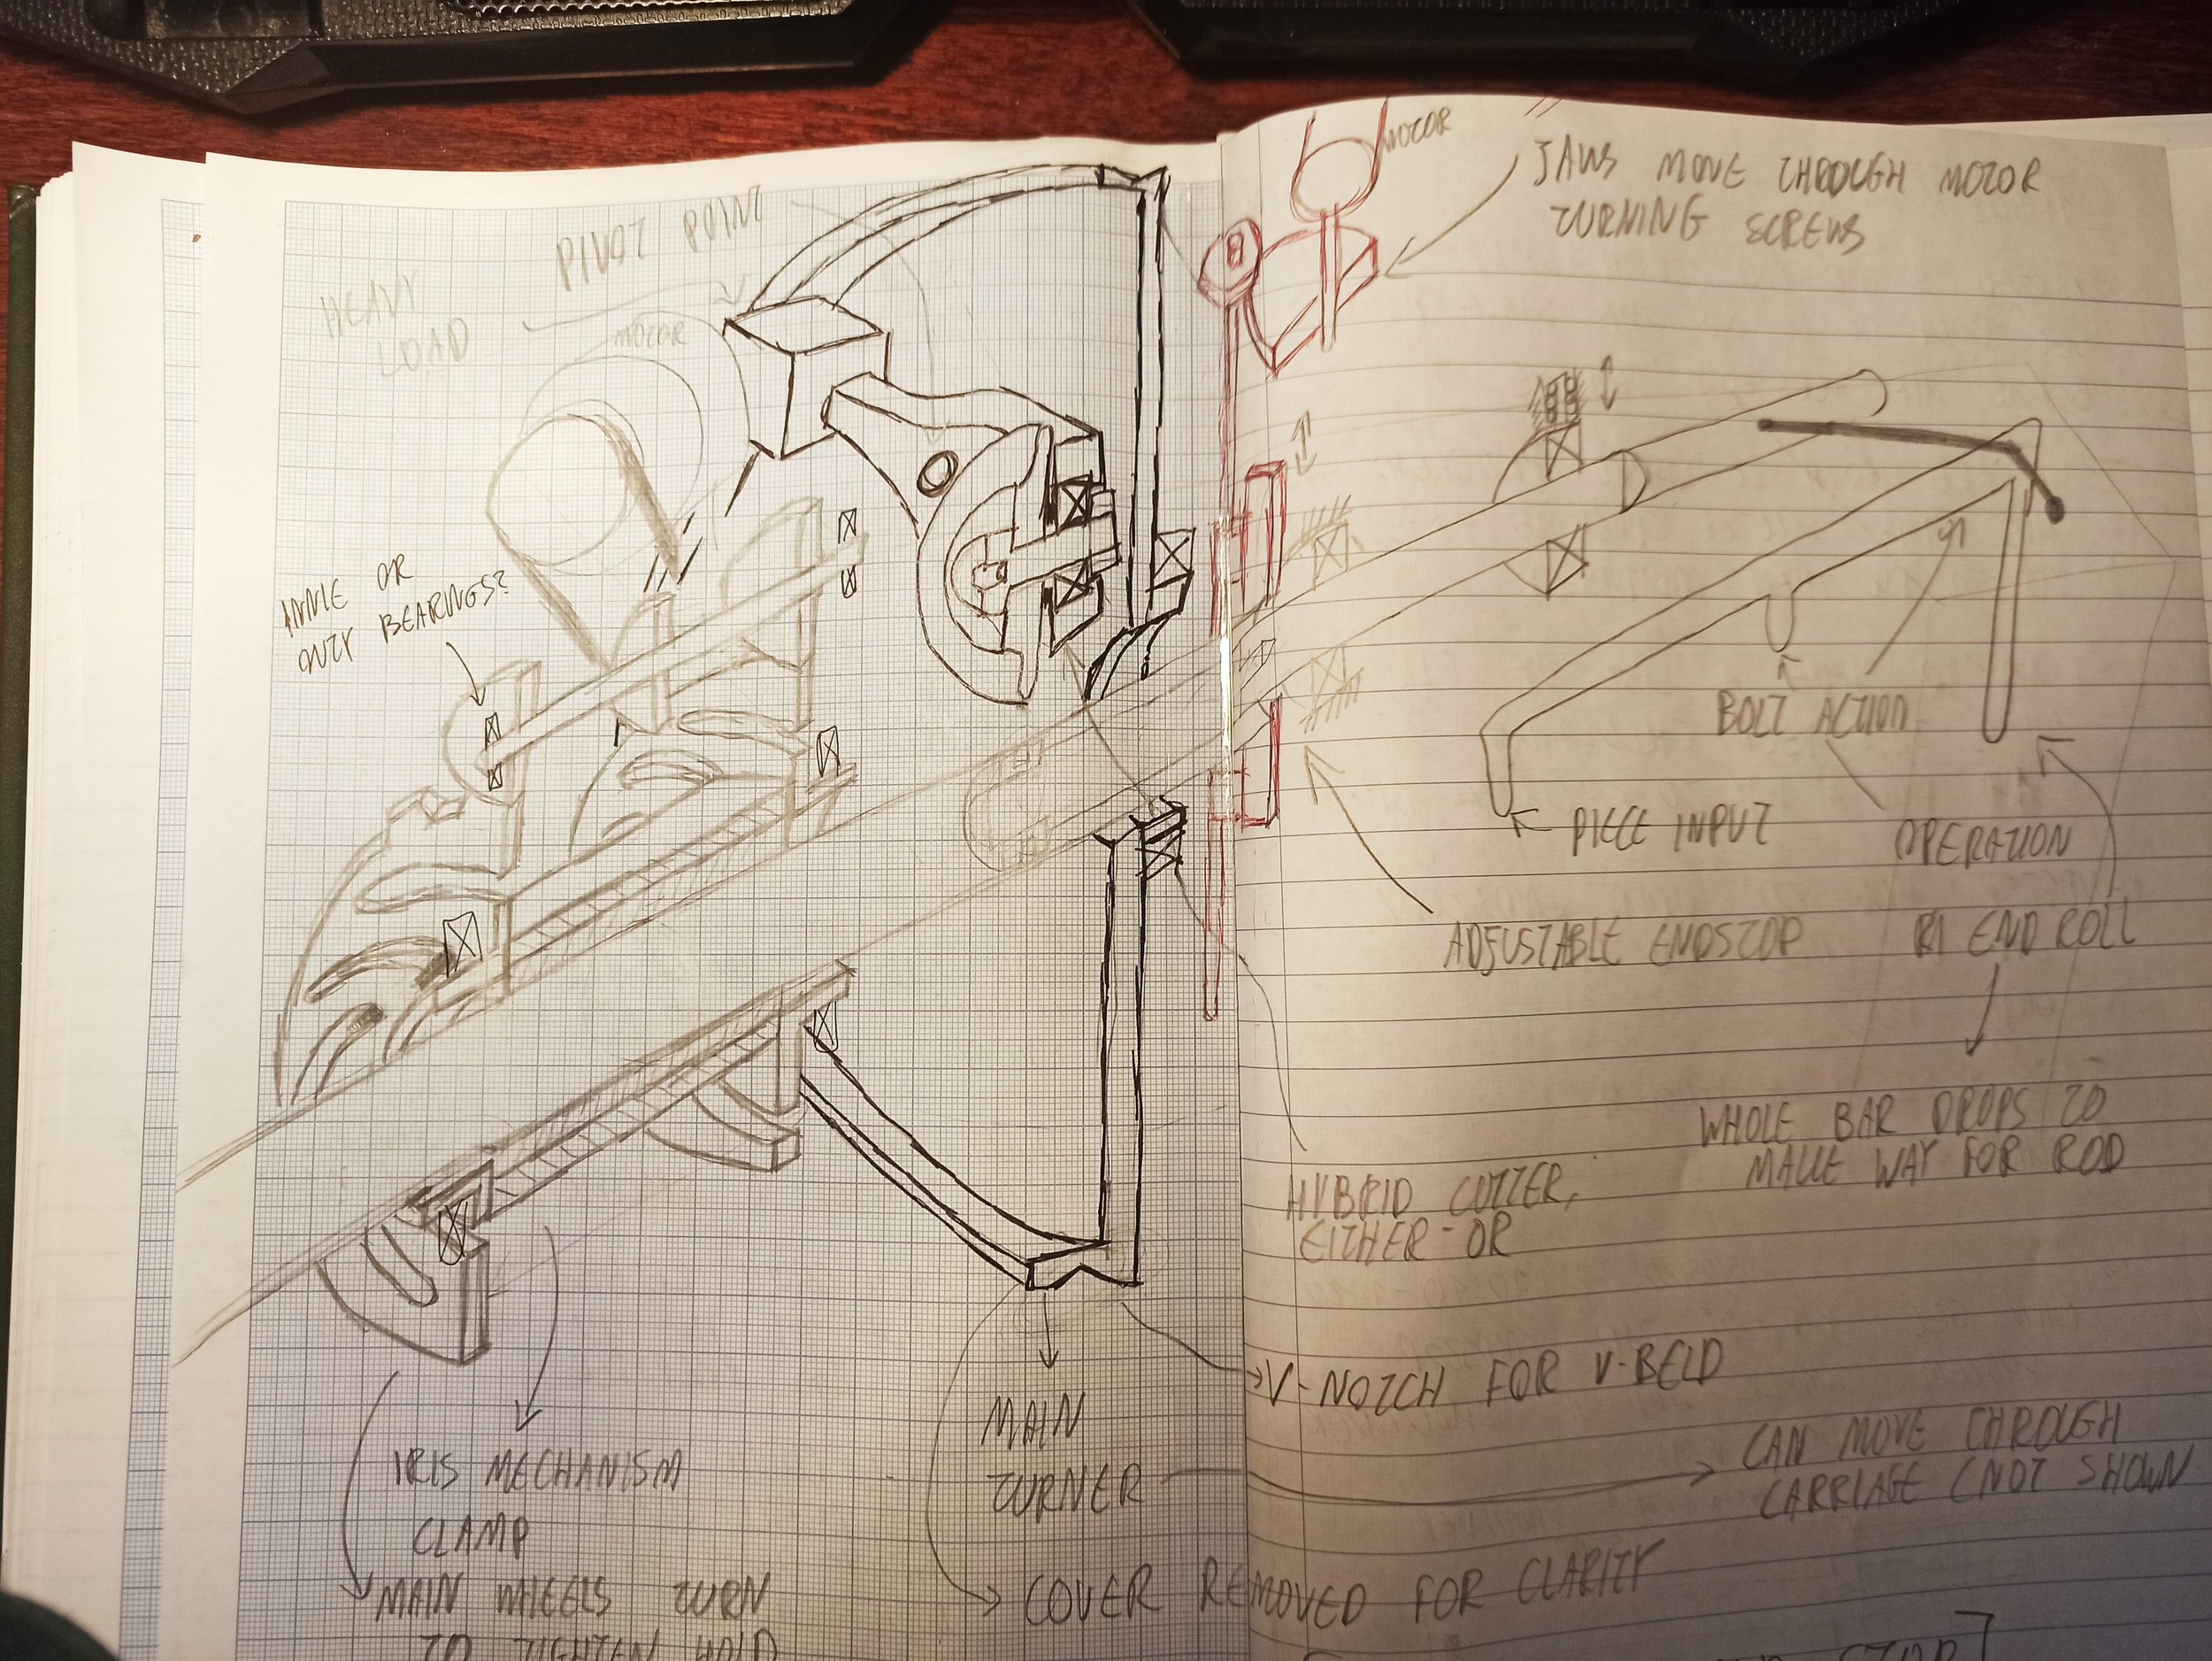 PIVOT POINT
HEAVY
LOAD
MOTOR
OR
ONLY BEARINGS?
IRIS MECHANISM
CLAMP
MAIN WHEELS TURN
TO TIGHTEN HOLD
MAIN
TURNER
COVER REMOVED FOR CLARITY
MOTOR
JAWS MOVE THROUGH MOTOR
TURNING SCREWS
BOLT ACTION
PIECE INPUT
OPERATION
ADJUSTABLE ENDSTOP
END ROLL
WHOLE BAR DROPS TO
MAKE WAY FOR ROD
HYBRID CUTTER,
EITHER-OR
V-NOTCH FOR V-BELD
CAN MOVE THROUGH
CARRIAGE (NOT SHOWN